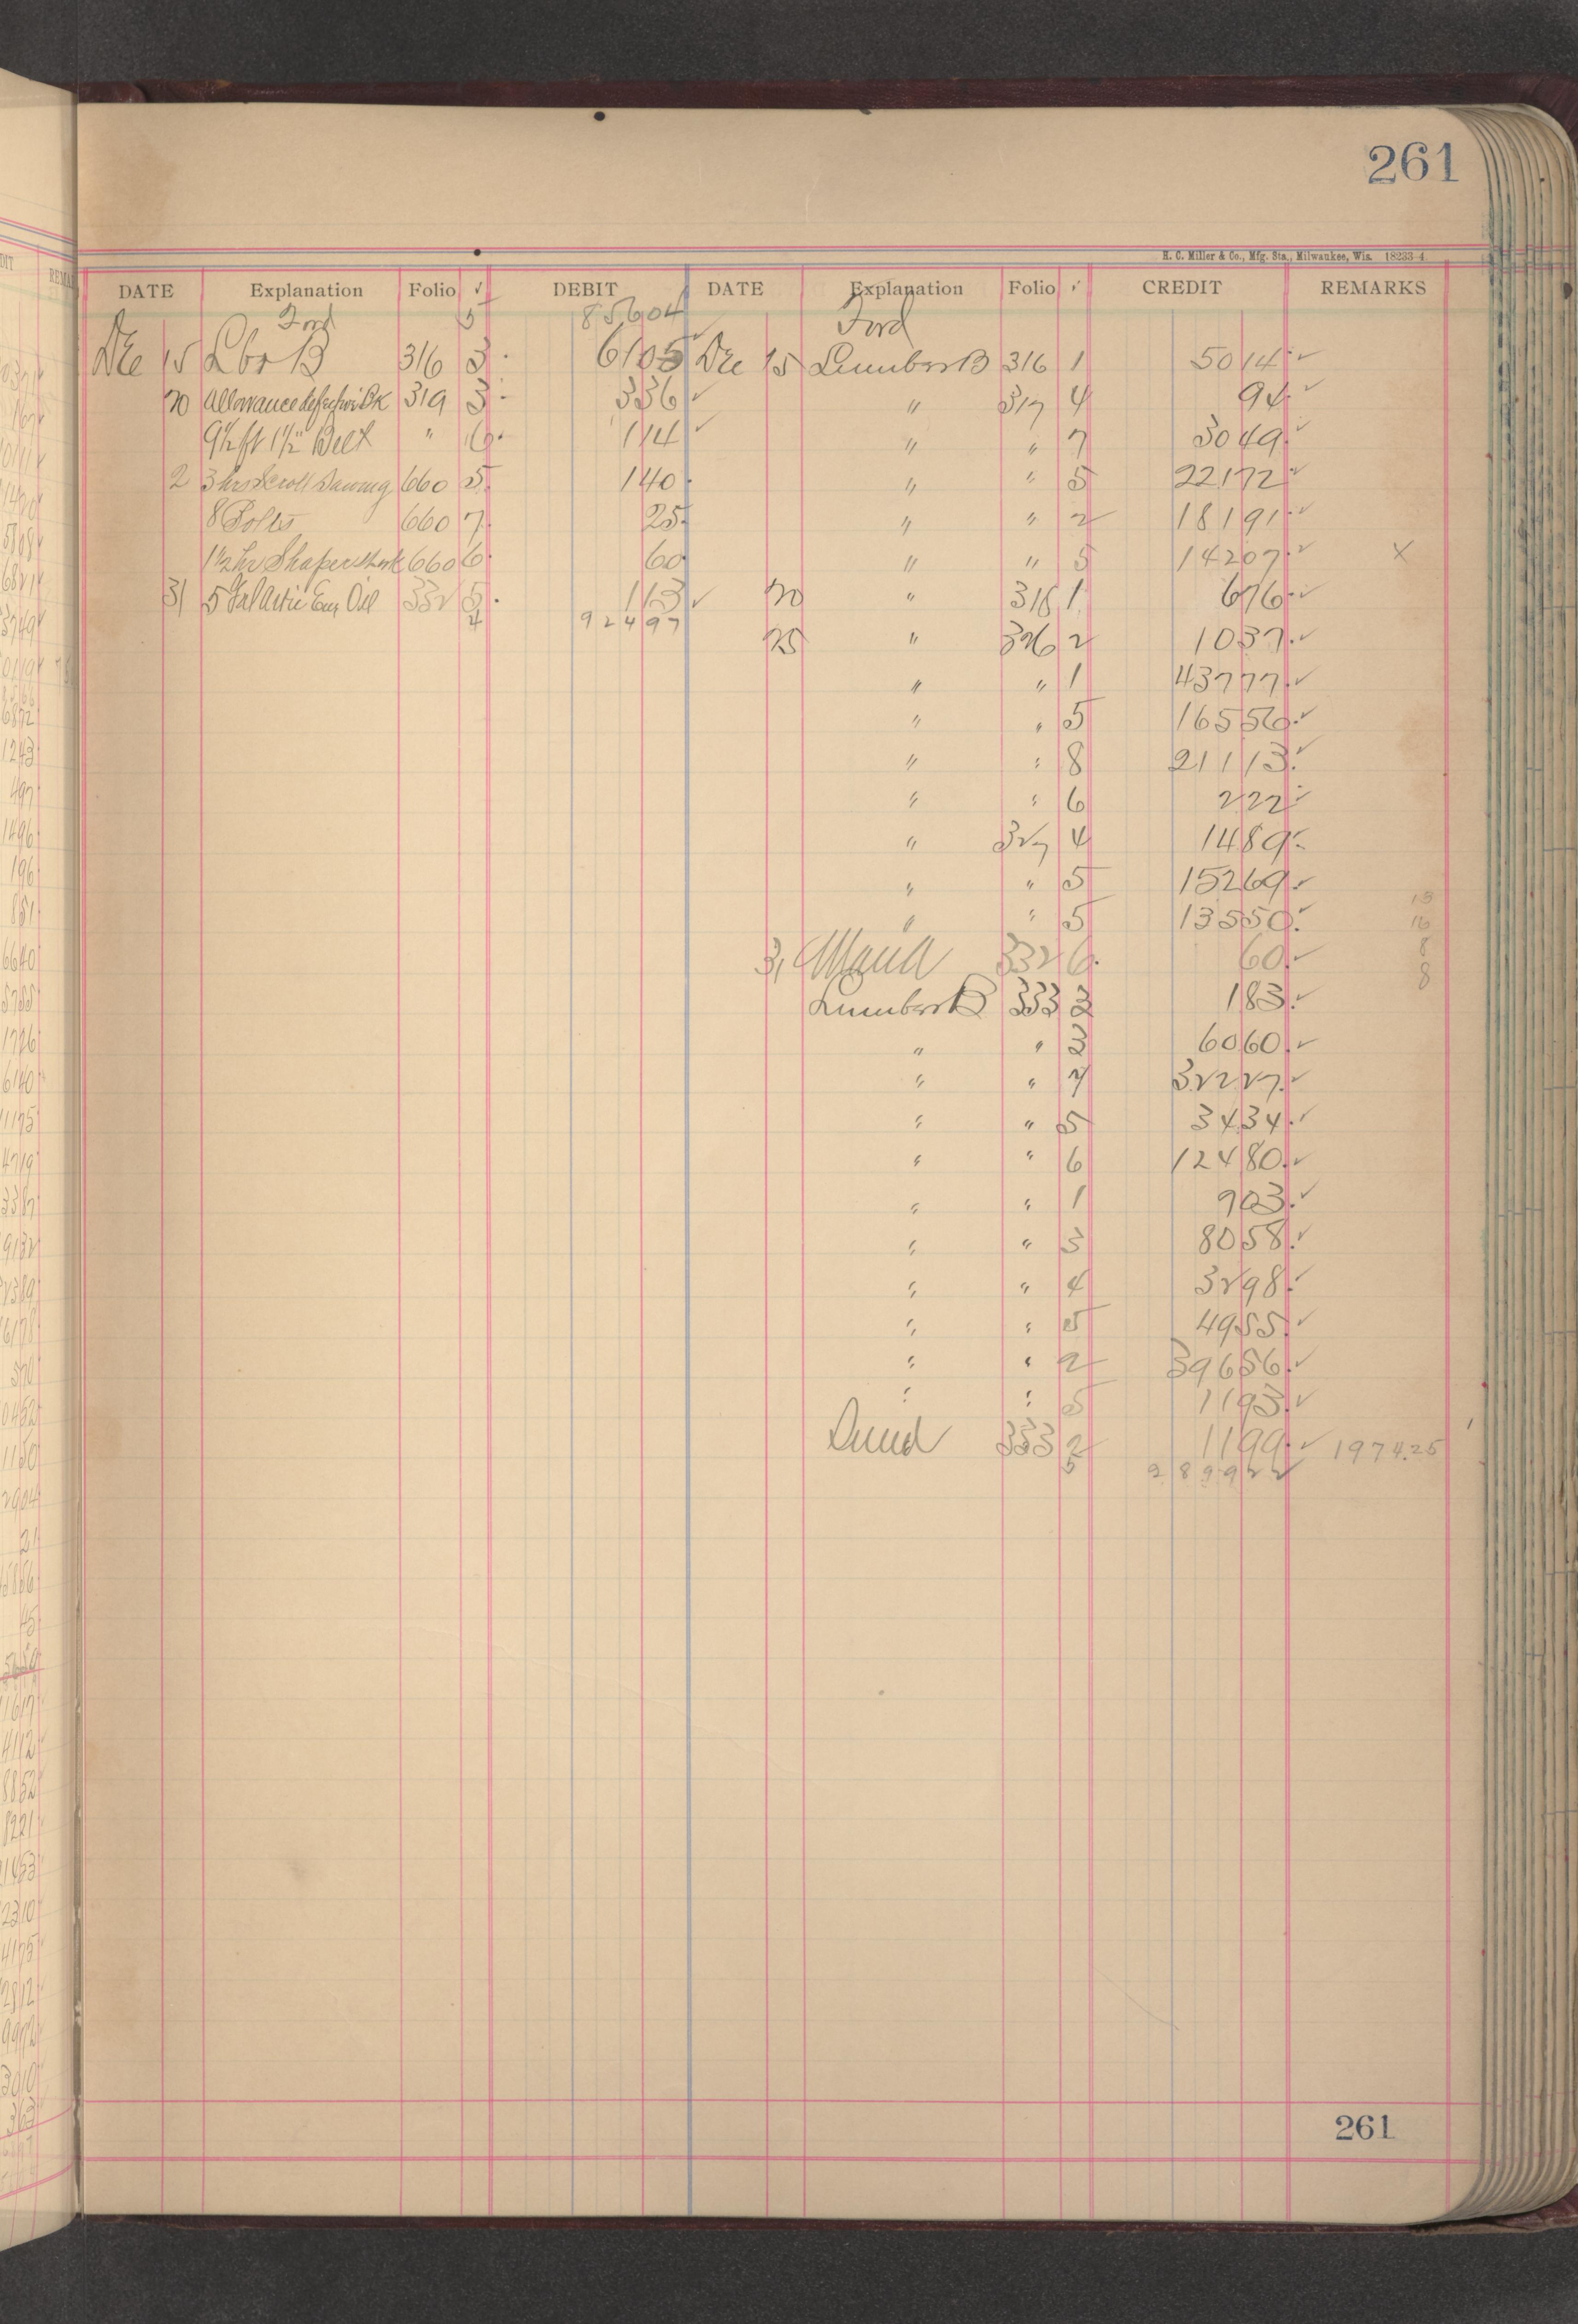 261
H. C. Miller & Co., Mfg. Sta., Milwaukee, Wis. 18233-4
DATE Explanation Folio ✓ DEBIT DATE Explanation Folio ✓ CREDIT REMARKS
Ford 5 85604 Ford
Dec 15 Lbr B 316 3 6105 ✓ Dec 15 Lumber B 316 1 5014 ✓
20 Allowance defective Bk 319 3 336 ✓ " 317 4 94 ✓
9½ ft 1½" Belt " 6 114 ✓ " " 7 3049 ✓
2 3 hrs Scroll Sawing 660 5 140 " " 5 22172 ✓
8 Bolts 660 7 25 " " 2 18191 ✓
1½ hr Shaper Work 660 6 60 " " 5 14207 ✓ X
31 5 Gal Arctic Eng Oil 332 5 113 ✓ 20 " 318 1 676 ✓
4 92497
25 " 326 2 1037 ✓
" " 1 43777 ✓
" " 5 16556 ✓
" " 8 21113 ✓
" " 6 222 ✓
" 327 4 1489 ✓
" " 5 15269 ✓
" " 5 13550 ✓
31 332 6 60 ✓
Lumber B 333 3 183 ✓
" " 3 6060 ✓
" " 7 32227 ✓
" " 5 3434 ✓
" " 6 12480 ✓
" " 1 903 ✓
" " 3 8058 ✓
" " 4 3298 ✓
" " 5 4955 ✓
" " 2 39656 ✓
" " 5 1193 ✓
333 2 1199 ✓ 1974.25
5 289922
261